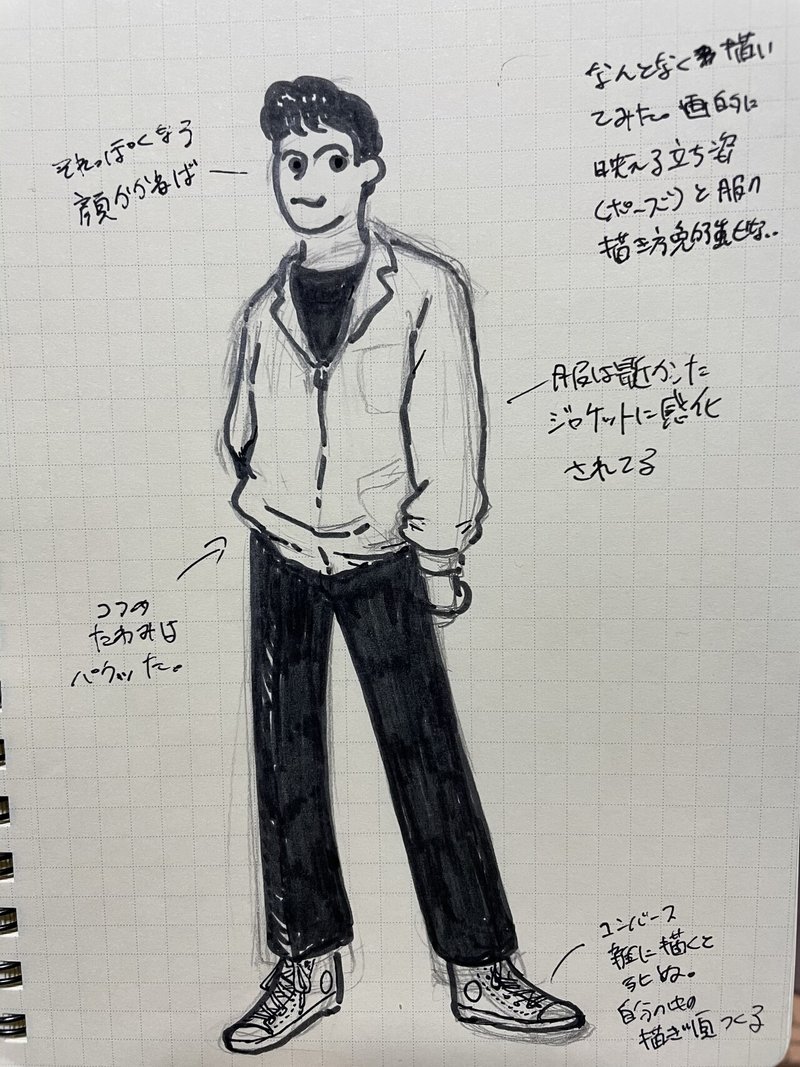 なんとなく描い
てみた。画的に
映える立ち姿
(ポーズ)と服の
描き方勉強せな..
それっぽくなる
顔がかければ
服は最近かった
ジャケットに感化
されてる
ココの
たわみは
パクッた。
コンバース
雑に描くと
死ぬ。
自分の中の
描き順つくる